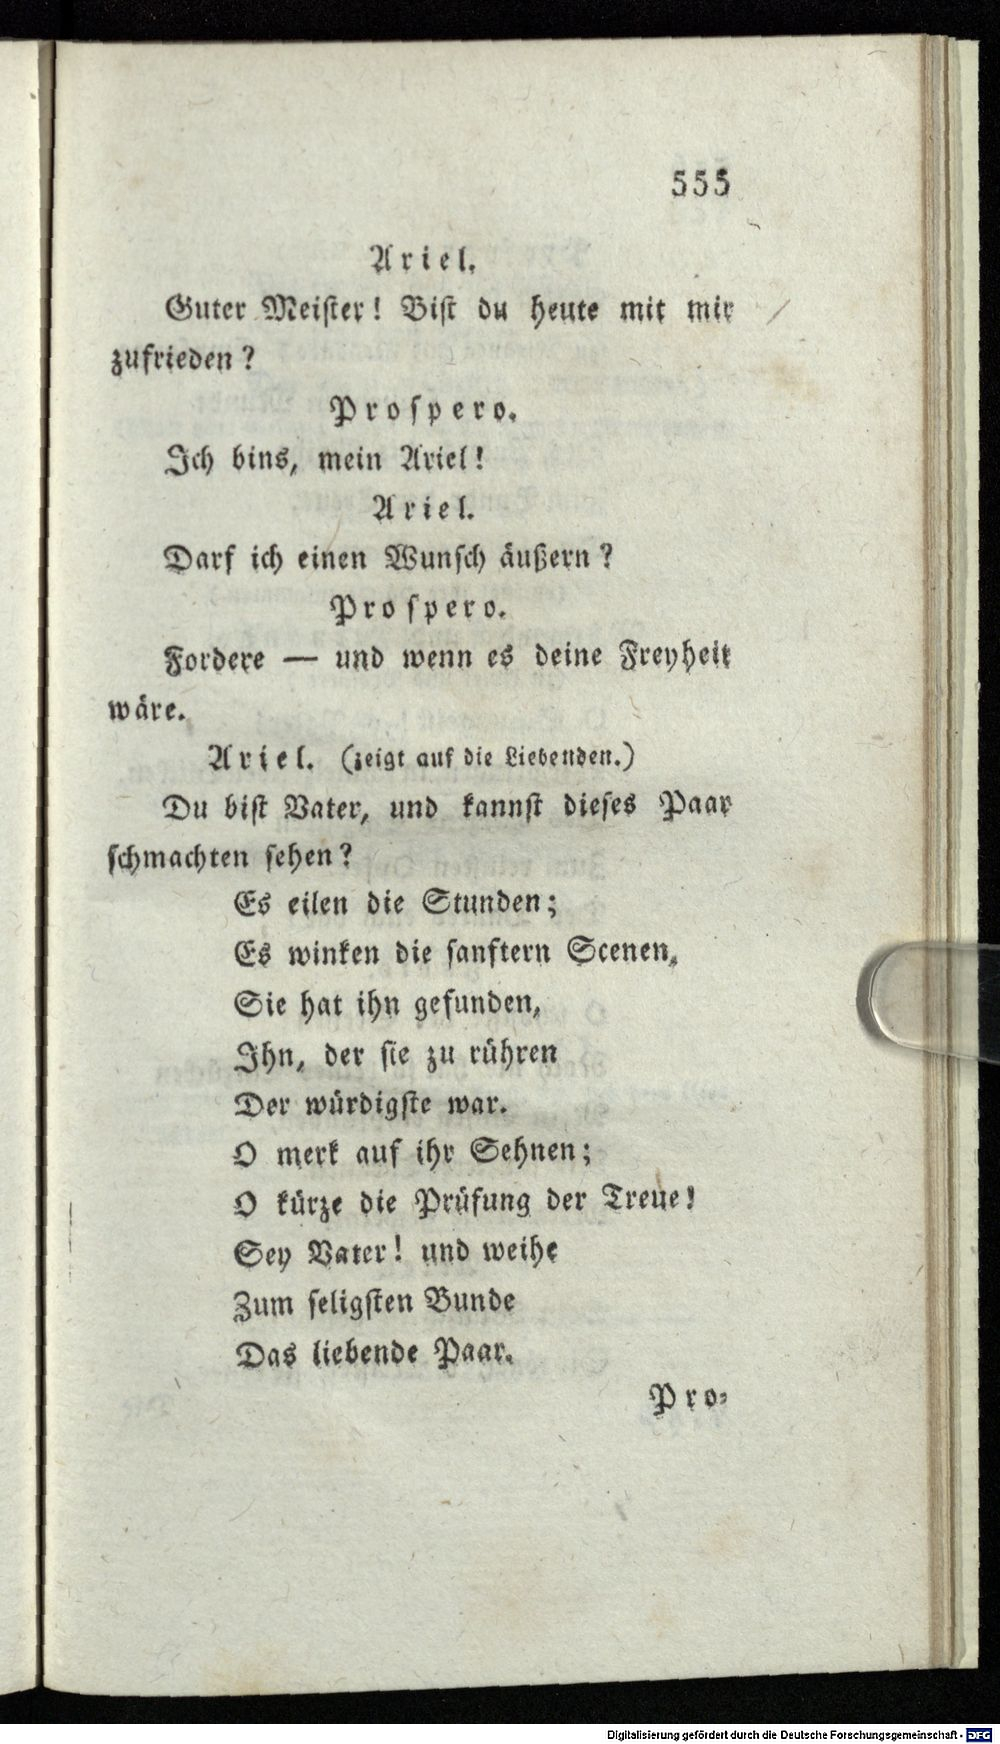 555
Ariel.
Guter Meiſter! Biſt du heute mit mir
zufrieden?
Proſpero.
Ich bins, mein Ariel!
Ariel.
Darf ich einen Wunſch äußern?
Proſpero.
Fordere — und wenn es deine Freyheit
wäre.
Ariel. (zeigt auf die Liebenden.)
Du biſt Vater, und kannſt dieſes Paar
ſchmachten ſehen?
Es eilen die Stunden;
Es winken die ſanftern Scenen,
Sie hat ihn gefunden,
Ihn, der ſie zu rühren
Der würdigſte war.
O merk auf ihr Sehnen;
O kürze die Prüfung der Treue!
Sey Vater! und weihe
Zum ſeligſten Bunde
Das liebende Paar.
Pro⸗
Digitalisierung gefördert durch die Deutsche Forschungsgemeinschaft - DFG